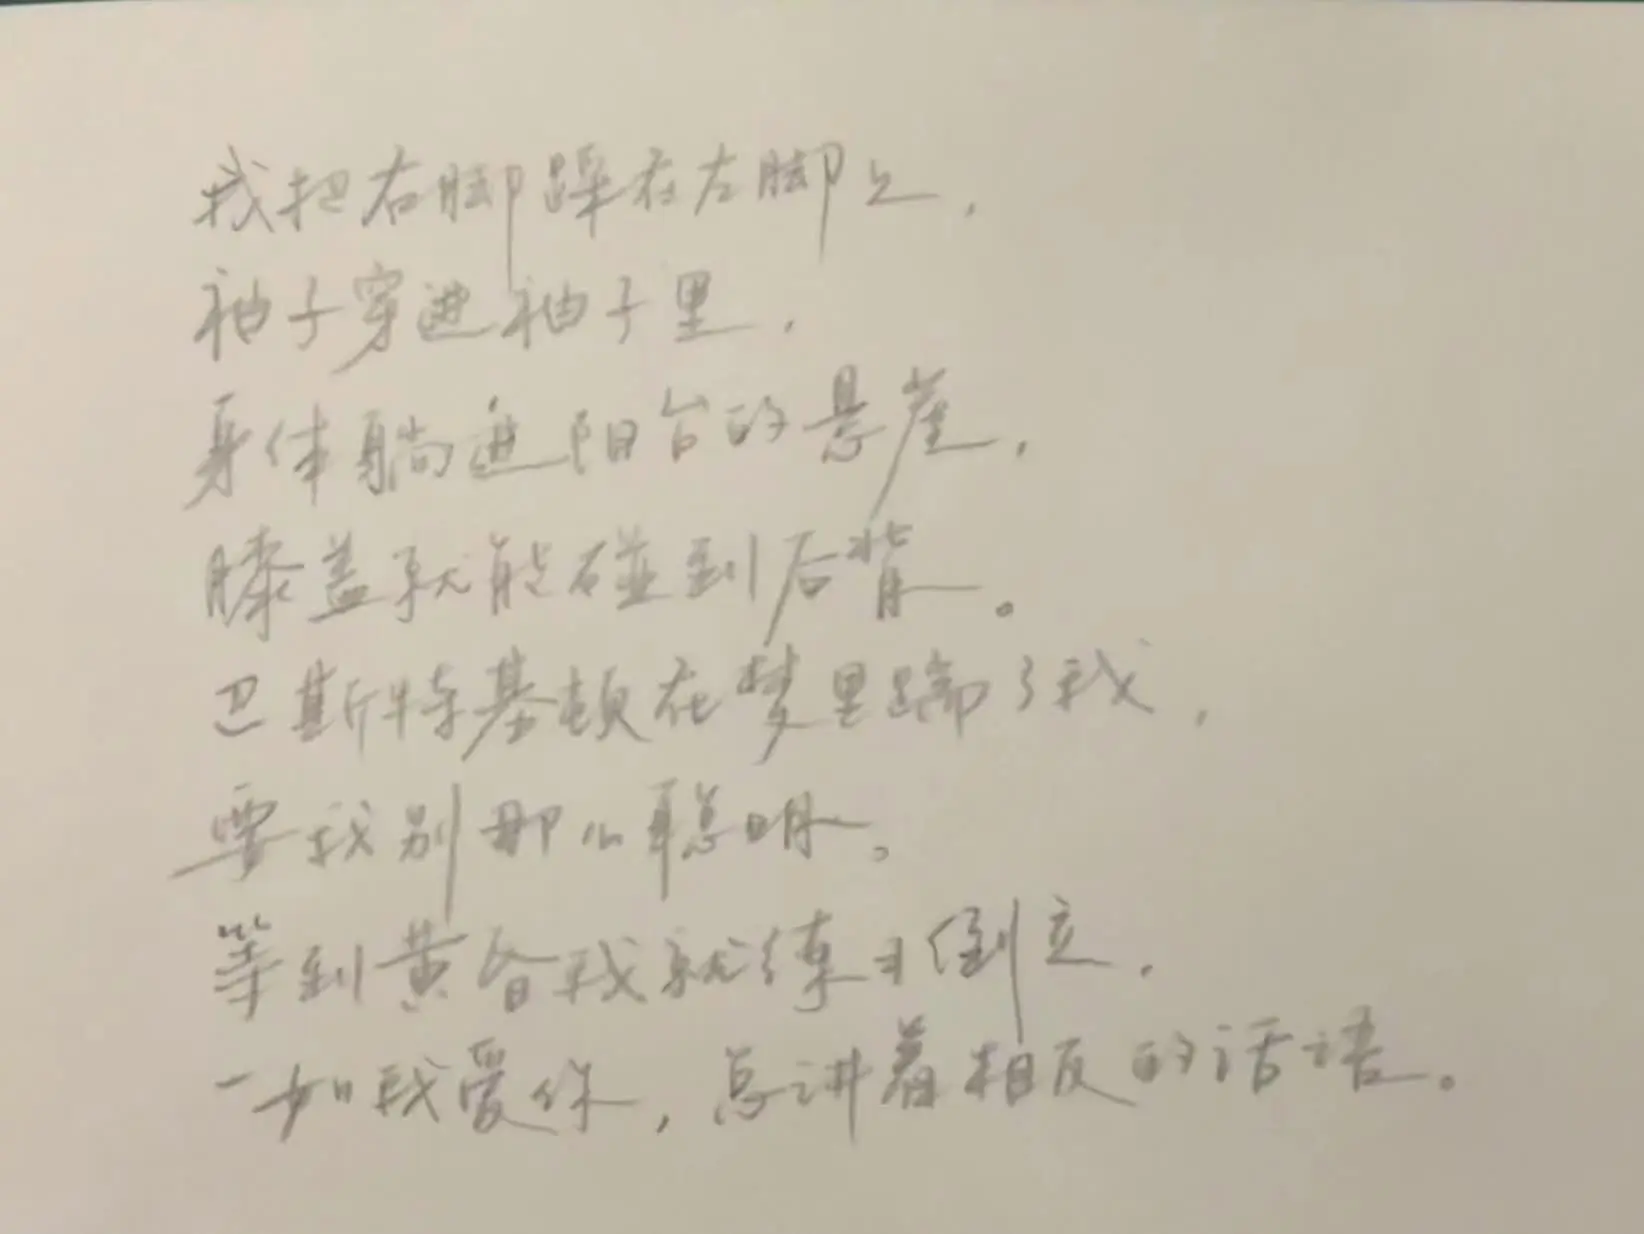 我把右脚踩在左脚上，
袖子穿进袖子里，
身体躺进阳台的悬崖，
膝盖就能碰到后背。
巴斯特基顿在梦里踹了我，
要我别那么聪明。
等到黄昏我就练习倒立，
一如我爱你，总讲着相反的话语。